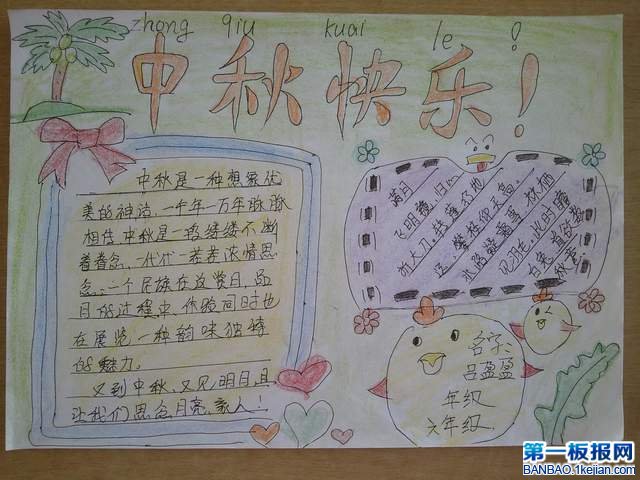 zhong qiu kuai le !
中秋快乐!
中秋是一种想象优
美的神话,一千年一万年脉脉
相传,中秋是一段缕缕不断
着眷念,一代代一茬茬浓情思
念;一个民族在这赏月、品
月的过程中,体验同时也
在展览一种韵味独特
的魅力。
又到中秋,又见明月,且
让我们思念月亮,家人!
满月
飞明镜,归心
折大刀,转蓬行地
远,攀桂仰天高
水路疑霜雪,林栖
见羽毛,此时瞻
白兔,直欲数
秋毫。
名字:
吕盈盈
年级
六年级.
第一板报网
BANBAO.1kejian.com